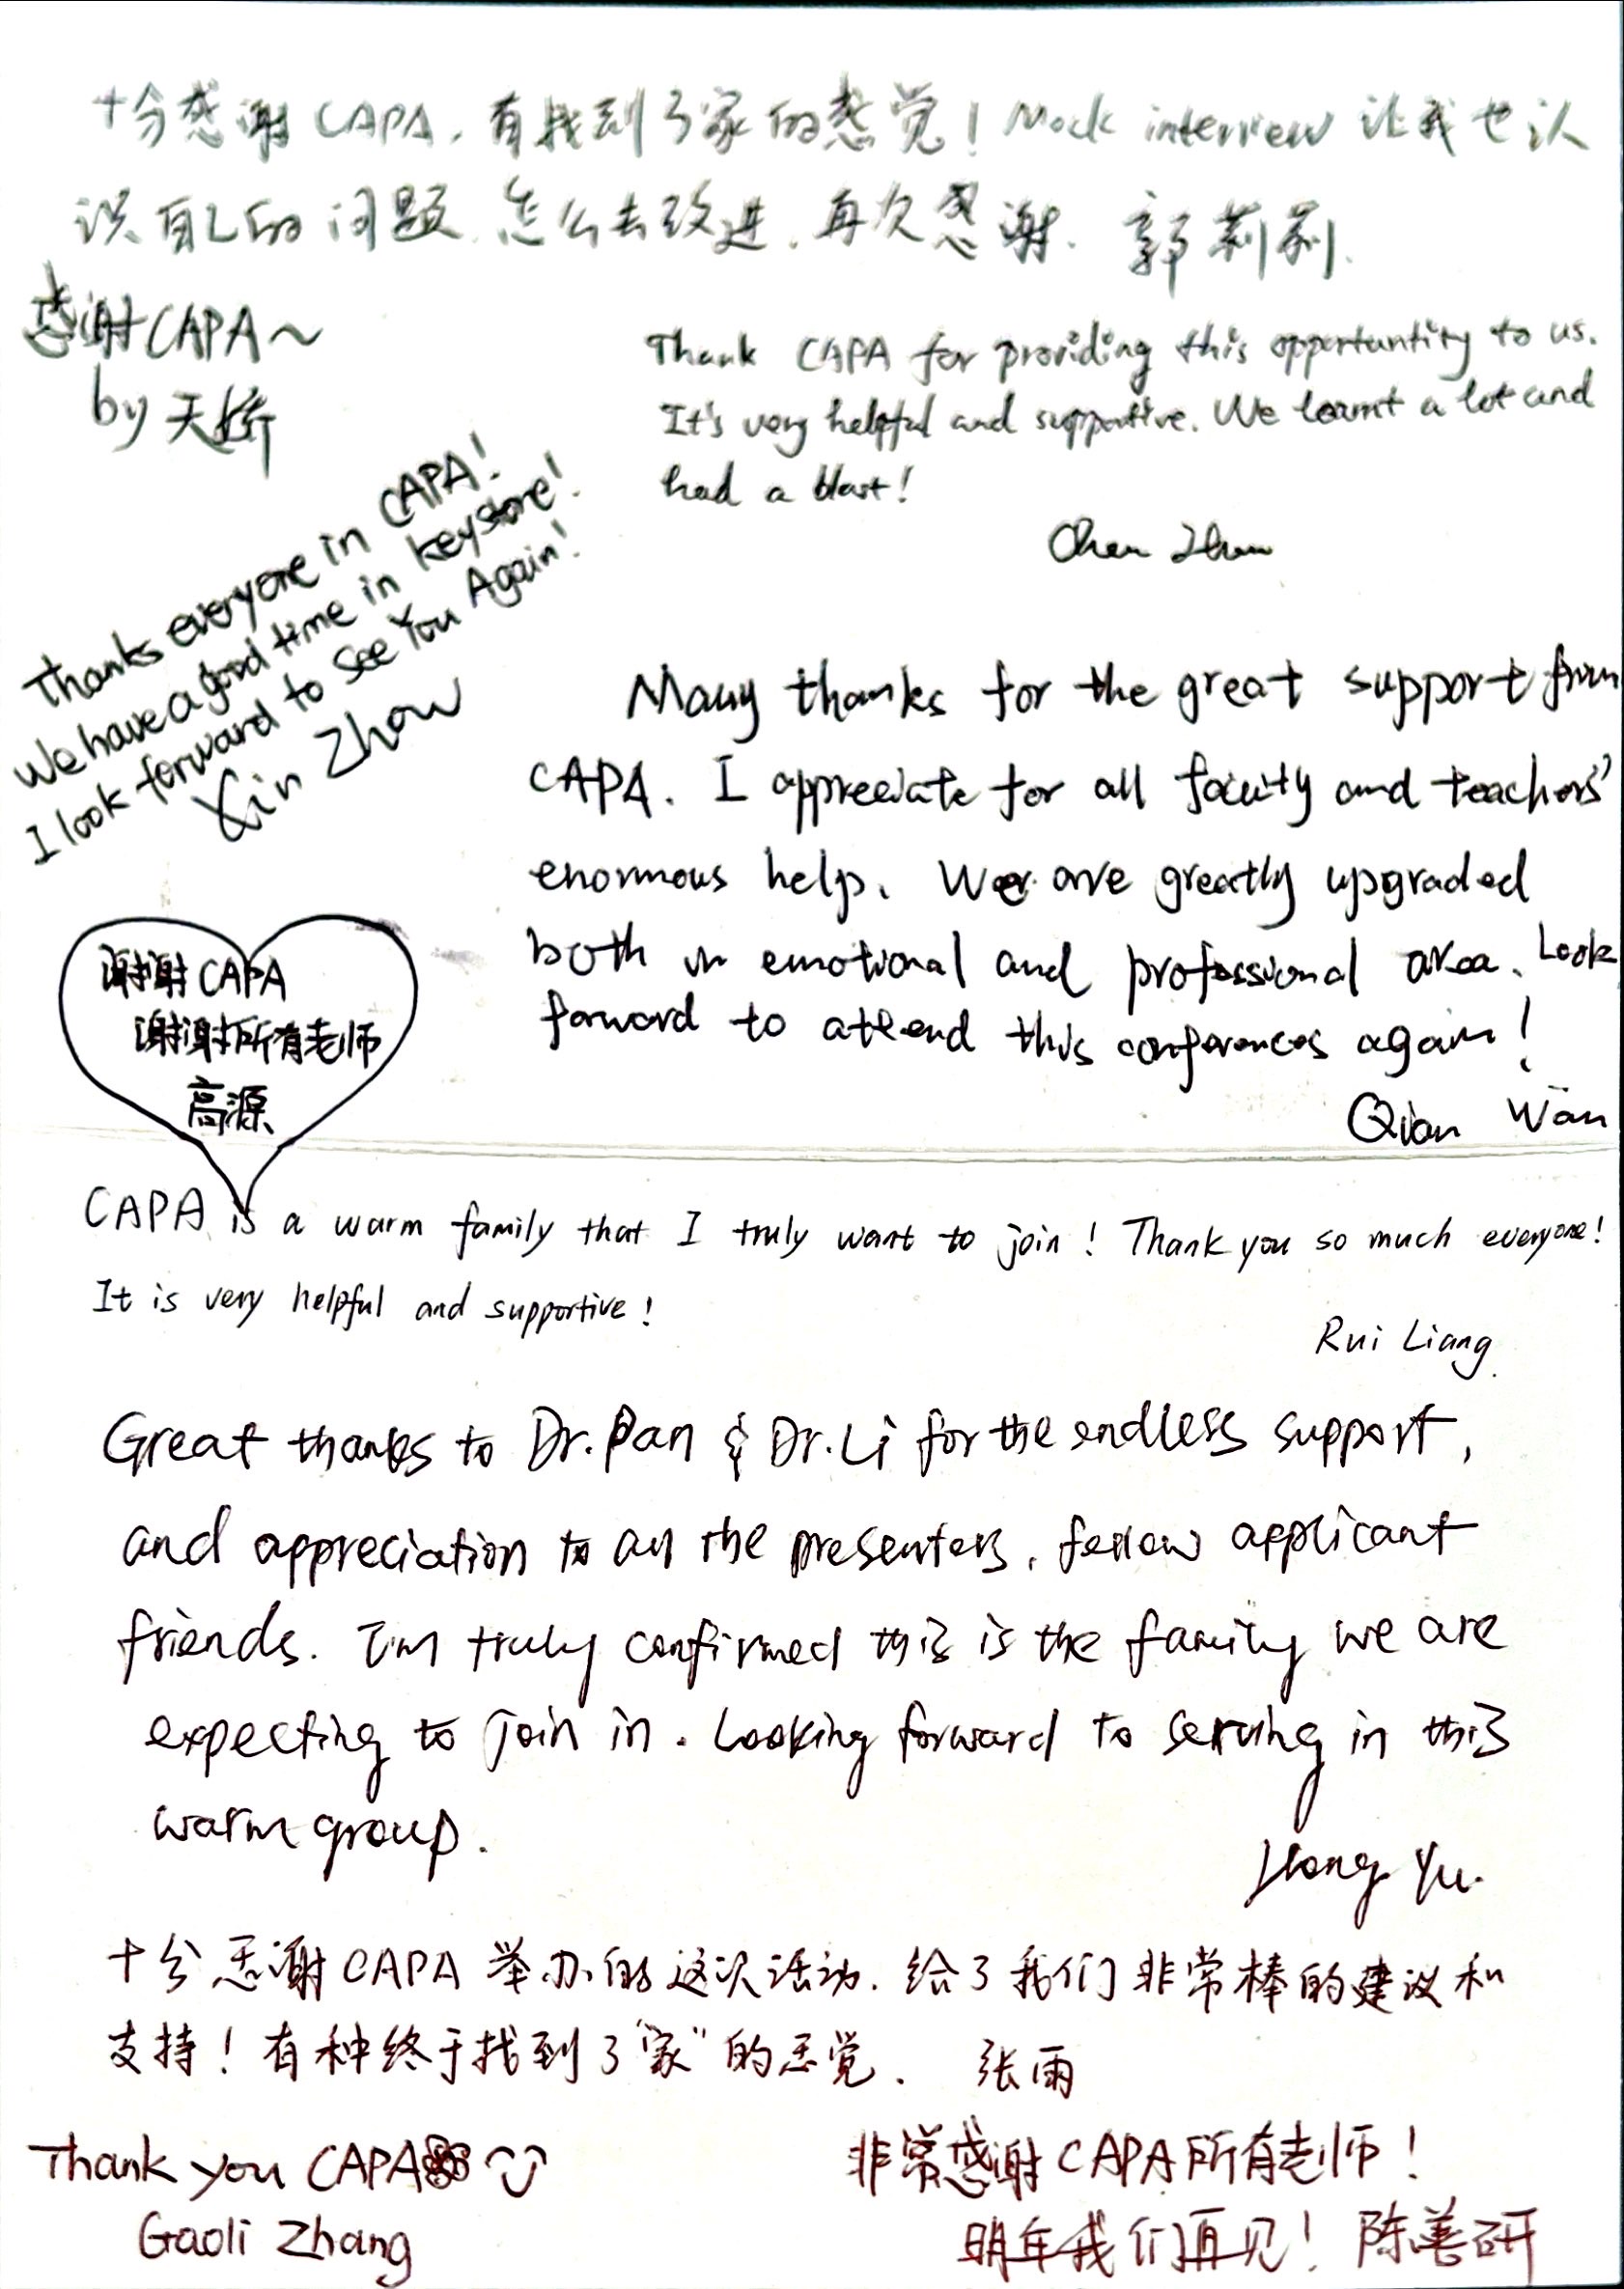 十分感谢CAPA，有找到了家的感觉！Mock interview 让我也认
识自己的问题，怎么去改进，再次感谢. 郭莉莉.
感谢CAPA~
by 天娇
Thank CAPA for providing this opportuntity to us.
It's very helpful and supportive. We learnt a lot and
had a blast!
Chen Zhu
Thanks everyone in CAPA!
We have a good time in keystone!
I look forward to See You Again!
Xin Zhou
Many thanks for the great support from
CAPA. I appreciate for all faculty and teachers'
enormous help. We are greatly upgraded
both in emotional and professional area. Look
forward to attend this conferences again!
Qian Wan
谢谢CAPA
谢谢所有老师
高源
CAPA is a warm family that I truly want to join! Thank you so much everyone!
It is very helpful and supportive!
Rui Liang
Great thanks to Dr. Pan & Dr. Li for the endless support,
and appreciation to all the presenters, fellow applicant
friends. I'm truly confirmed this is the family we are
expecting to join in. Looking forward to serving in this
warm group.
Hong Yu.
十分感谢CAPA 举办的这次活动. 给了我们非常棒的建议和
支持！有种终于找到了"家"的感觉. 张雨
Thank you CAPA
Gaoli Zhang
非常感谢CAPA所有老师！
明年我们再见！陈善研